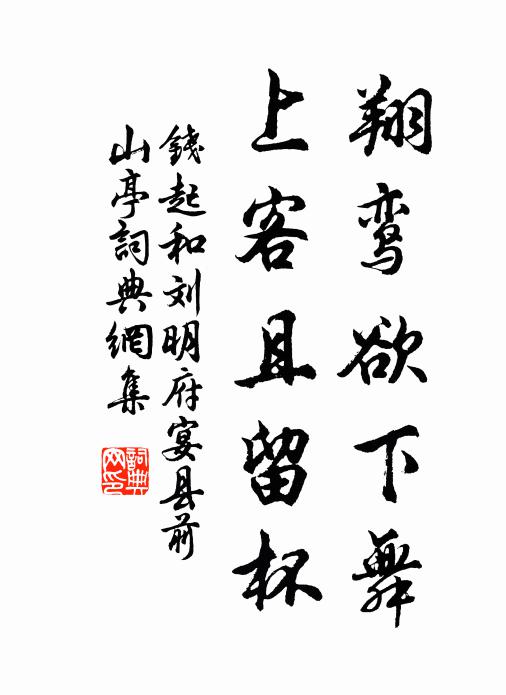 翔鸾欲下舞
上客且留杯
錢起和刘明府宴县前
山亭詞典網集
詞典网印